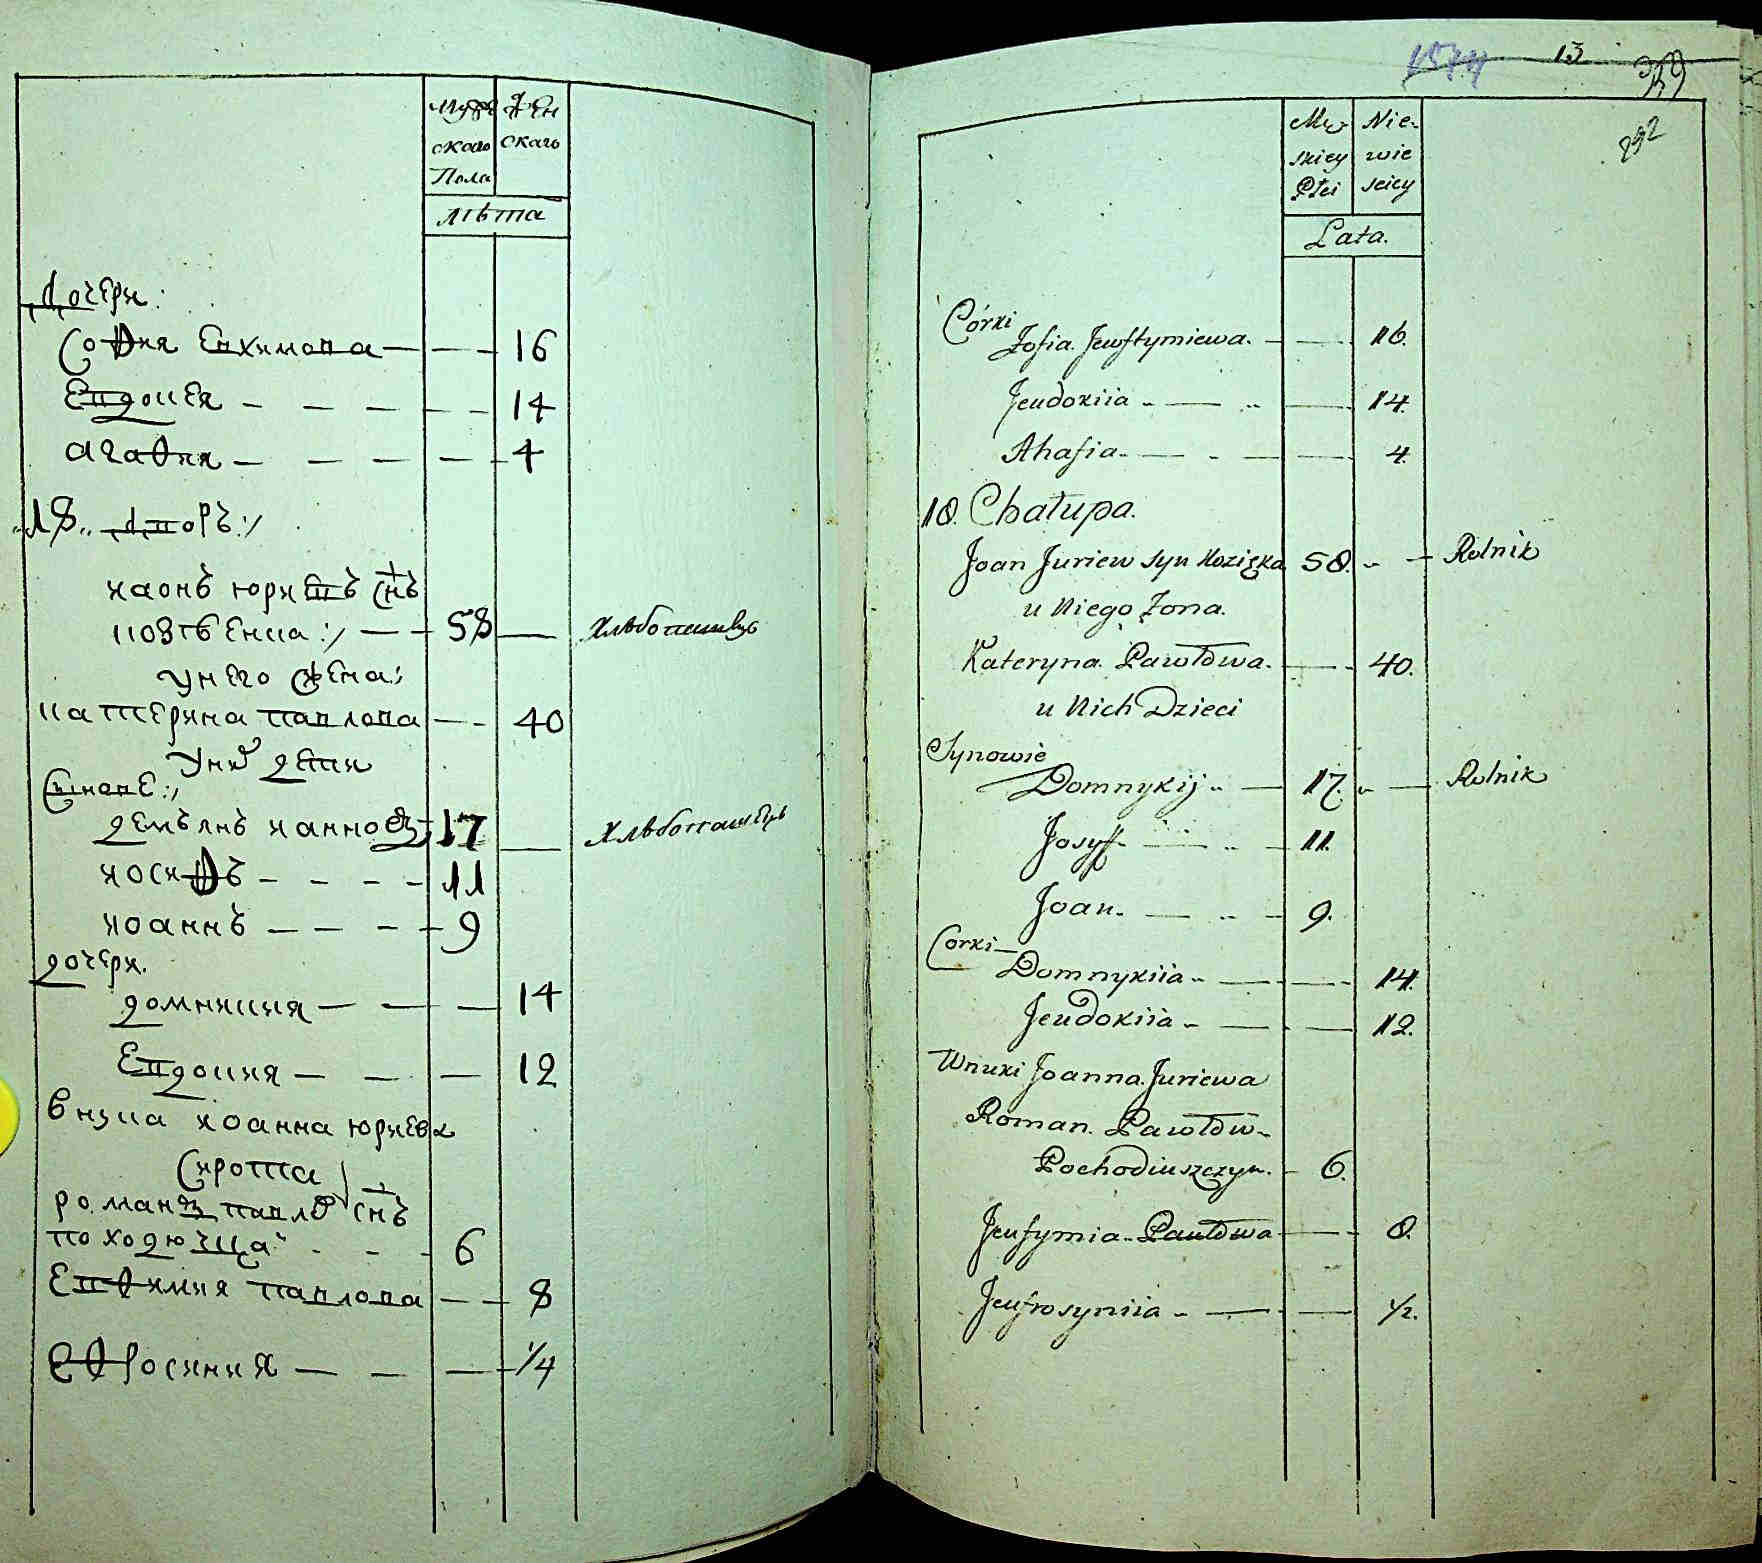 Мужескаго Пола
Женскаго
лѣта
Дочери:
София Евхимова — — — 16
Евдокея — — — — — 14
Агафия — — — — — 4
„18„ Дворъ:/
иаонъ юриевъ снъ
козѣенка :/ — — 58 — хлѣбопашецъ
У него жена:
катерина павлова — — 40
У них дети
Сынове:/
демъянъ ианнов 17 — Хлѣбопашецъ
иосифъ — — — — 11
иоаннъ — — — — 9
дочери.
домникия — — — 14
Евдокия — — — 12
внука иоанна юриева
Сирота
романъ павлов снъ
походючка - - - 6
Евфимия павлова — — 8
Ефросиния — — — 1/4
1574
13
359
892
Męzkiey Płci
Niewiesciey
Lata.
Córki
Zofia Jewftymiewa. — — 16.
Jeudokiia — — 14.
Ahafia — — 4.
18. Chałupa.
Joan Juriew syn Kozięka 58. — Rolnik
u Niego Zona.
Kateryna. Pawłowa. — 40.
u Nich Dzieci
Synowie
Domnykij — 17. — Rolnik
Josyf — — 11.
Joan. — — 9.
Corki —
Domnykiia — — 14.
Jeudokiia — — 12.
Wnuki Joanna Juriewa
Roman. Pawłow
Pochodiuszczyn. — 6.
Jeufymia Pawłowa — 8.
Jeufrosyniia — — 1/2.